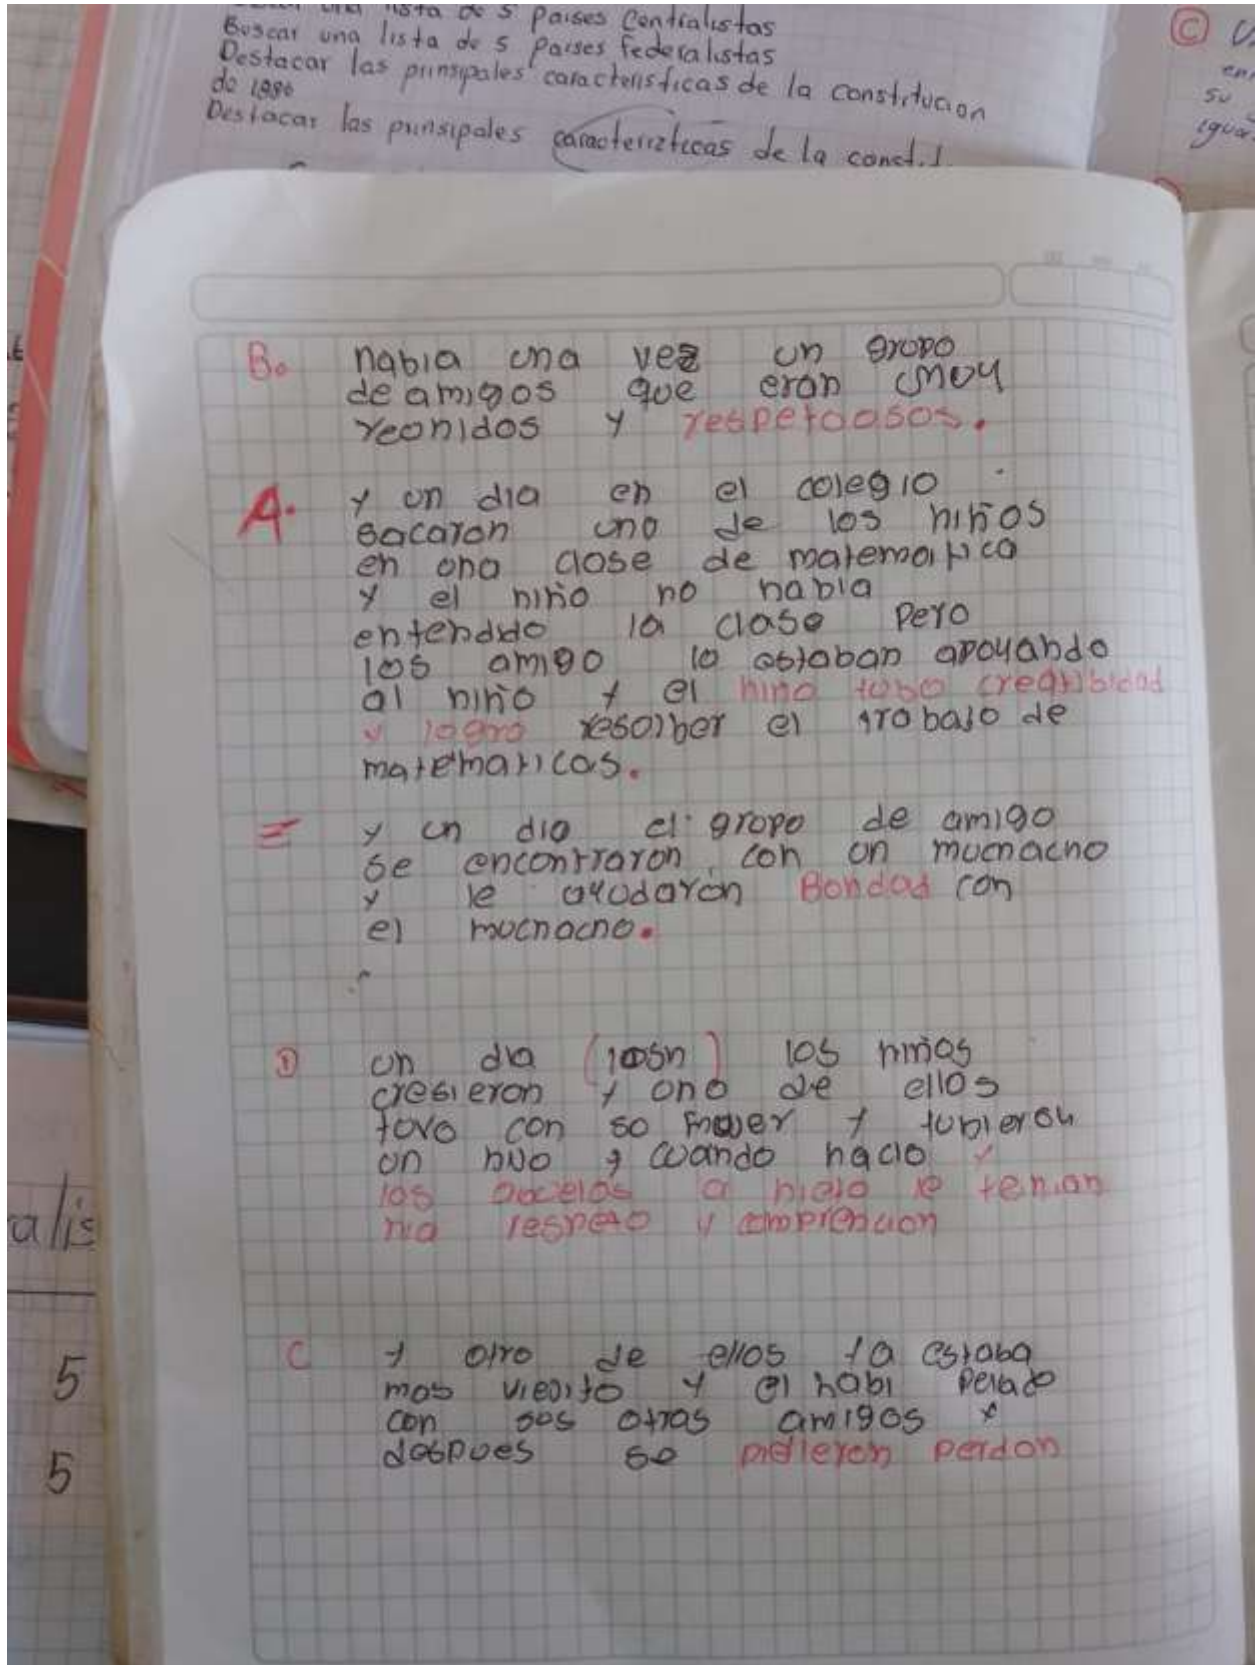 una lista de 5 paises Centralistas
Buscar una lista de 5 paises federalistas
Destacar las prinsipales caracteristicas de la constitucion
de 1886
Destacar las prinsipales caracterizticas de la
C
B. habia una vez un gropo
de amigos que eran moy
reonidos y respetoosos.
A. y on dia en el colegio
sacaron uno de los niños
en ona clase de matematica
y el niño no habia
entendido la clase pero
los amigo lo estaban apoyando
al niño y el niño tobo creatibidad
y logro resolber el trabajo de
matematicas.
E y un dia el gropo de amigo
se encontraron con on mochacho
y le ayodaron Bondad con
el mochacho.
D on dia (losn) los niños
cresieron y ono de ellos
tovo con so mojer y tubieron
on hijo y cuando nacio y
los a le tenian
respeto y
C y otro de ellos ya estaba
mas viejito y el habi peliado
con sos otros amigos y
despoes se pidieron perdon
alis
5
5